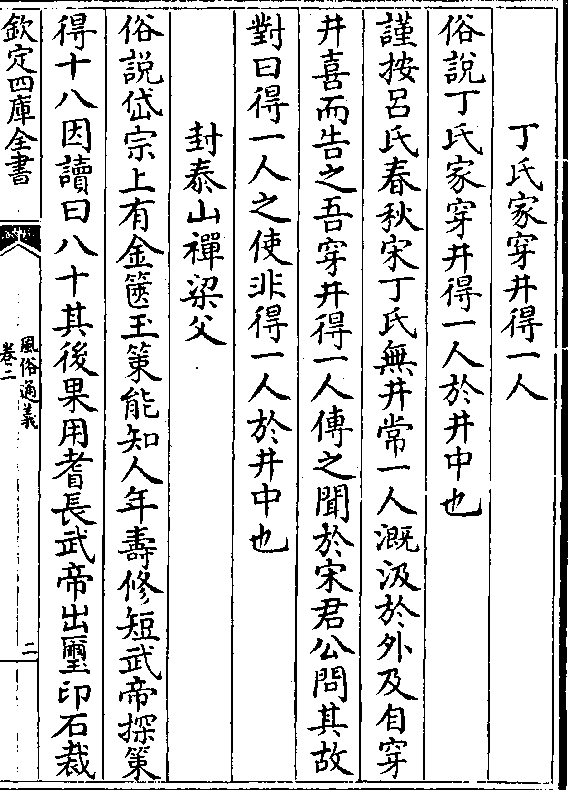 丁氏家穿井得一人
俗說丁氏家穿井得一人於井中也
謹按呂氏春秋宋丁氏無井常一人溉汲於外及自穿
井喜而告之吾穿井得一人傳之聞於宋君公問其故
對曰得一人之使非得一人於井中也
封泰山禪梁父
俗說岱宗上有金篋玉策能知人年壽修短武帝探策
得十八因讀曰八十其後果用耆長武帝出璽印石裁
欽定四庫全書
風俗通義
卷二
二